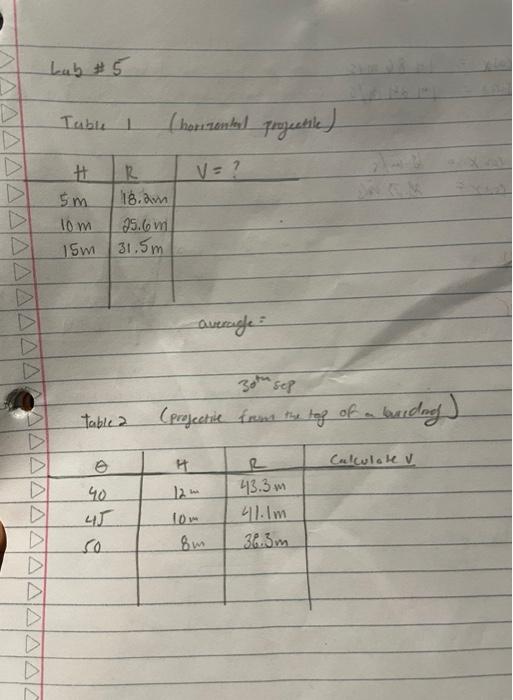 Lab # 5
Table 1 (horizontal projectile)
H R V = ?
5m 18.2m
10m 25.6m
15m 31.5m
average =
30th sep
Table 2 (projectile from the top of a building)
θ H R Calculate V
40 12m 43.3m
45 10m 41.1m
50 8m 38.3m